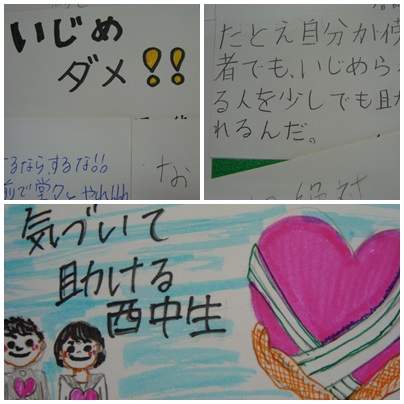 いじめ
ダメ!!
るなら、するな!!
前で堂々と
な
たとえ自分が傍
者でも、いじめら
る人を少しでも助
れるんだ。
絶対
気づいて
助ける
西中生